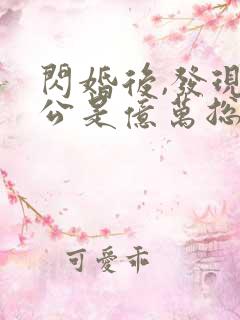 閃婚後,發現
公是億萬總
可愛乖